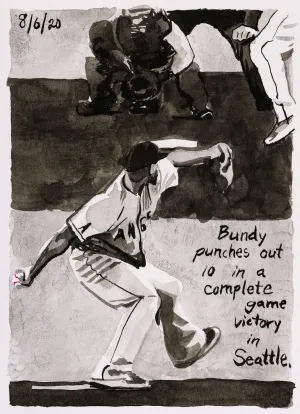 8/6/20
ANGE
Bundy
punches out
10 in a
complete
game
victory
in
Seattle.